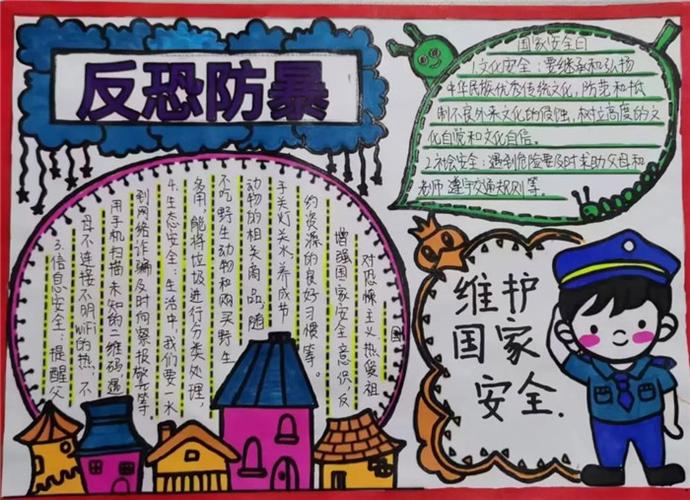 反恐防暴
国家安全日
1.文化安全:要继承和弘扬
中华民族优秀传统文化,防范和抵
制不良外来文化的侵蚀,树立高度的文
化自觉和文化自信。
2.社会安全:遇到危险要及时求助父母和
老师遵守交通规则等。
3.信息安全:提醒父
母不连接不明WiFi的热,不
用手机扫描未知的二维码,遇
到网络诈骗及时向察报警等
4.生态安全:生活中,我们要一水
多用,能将垃圾进行分类处理,
不吃野生动物和购买野生
动物的相关商品,随
手关灯关水,养成节
约资源的良好习惯等。
增强国家安全意识,反
对恐怖主义热爱祖
国
维护
国家
安全.